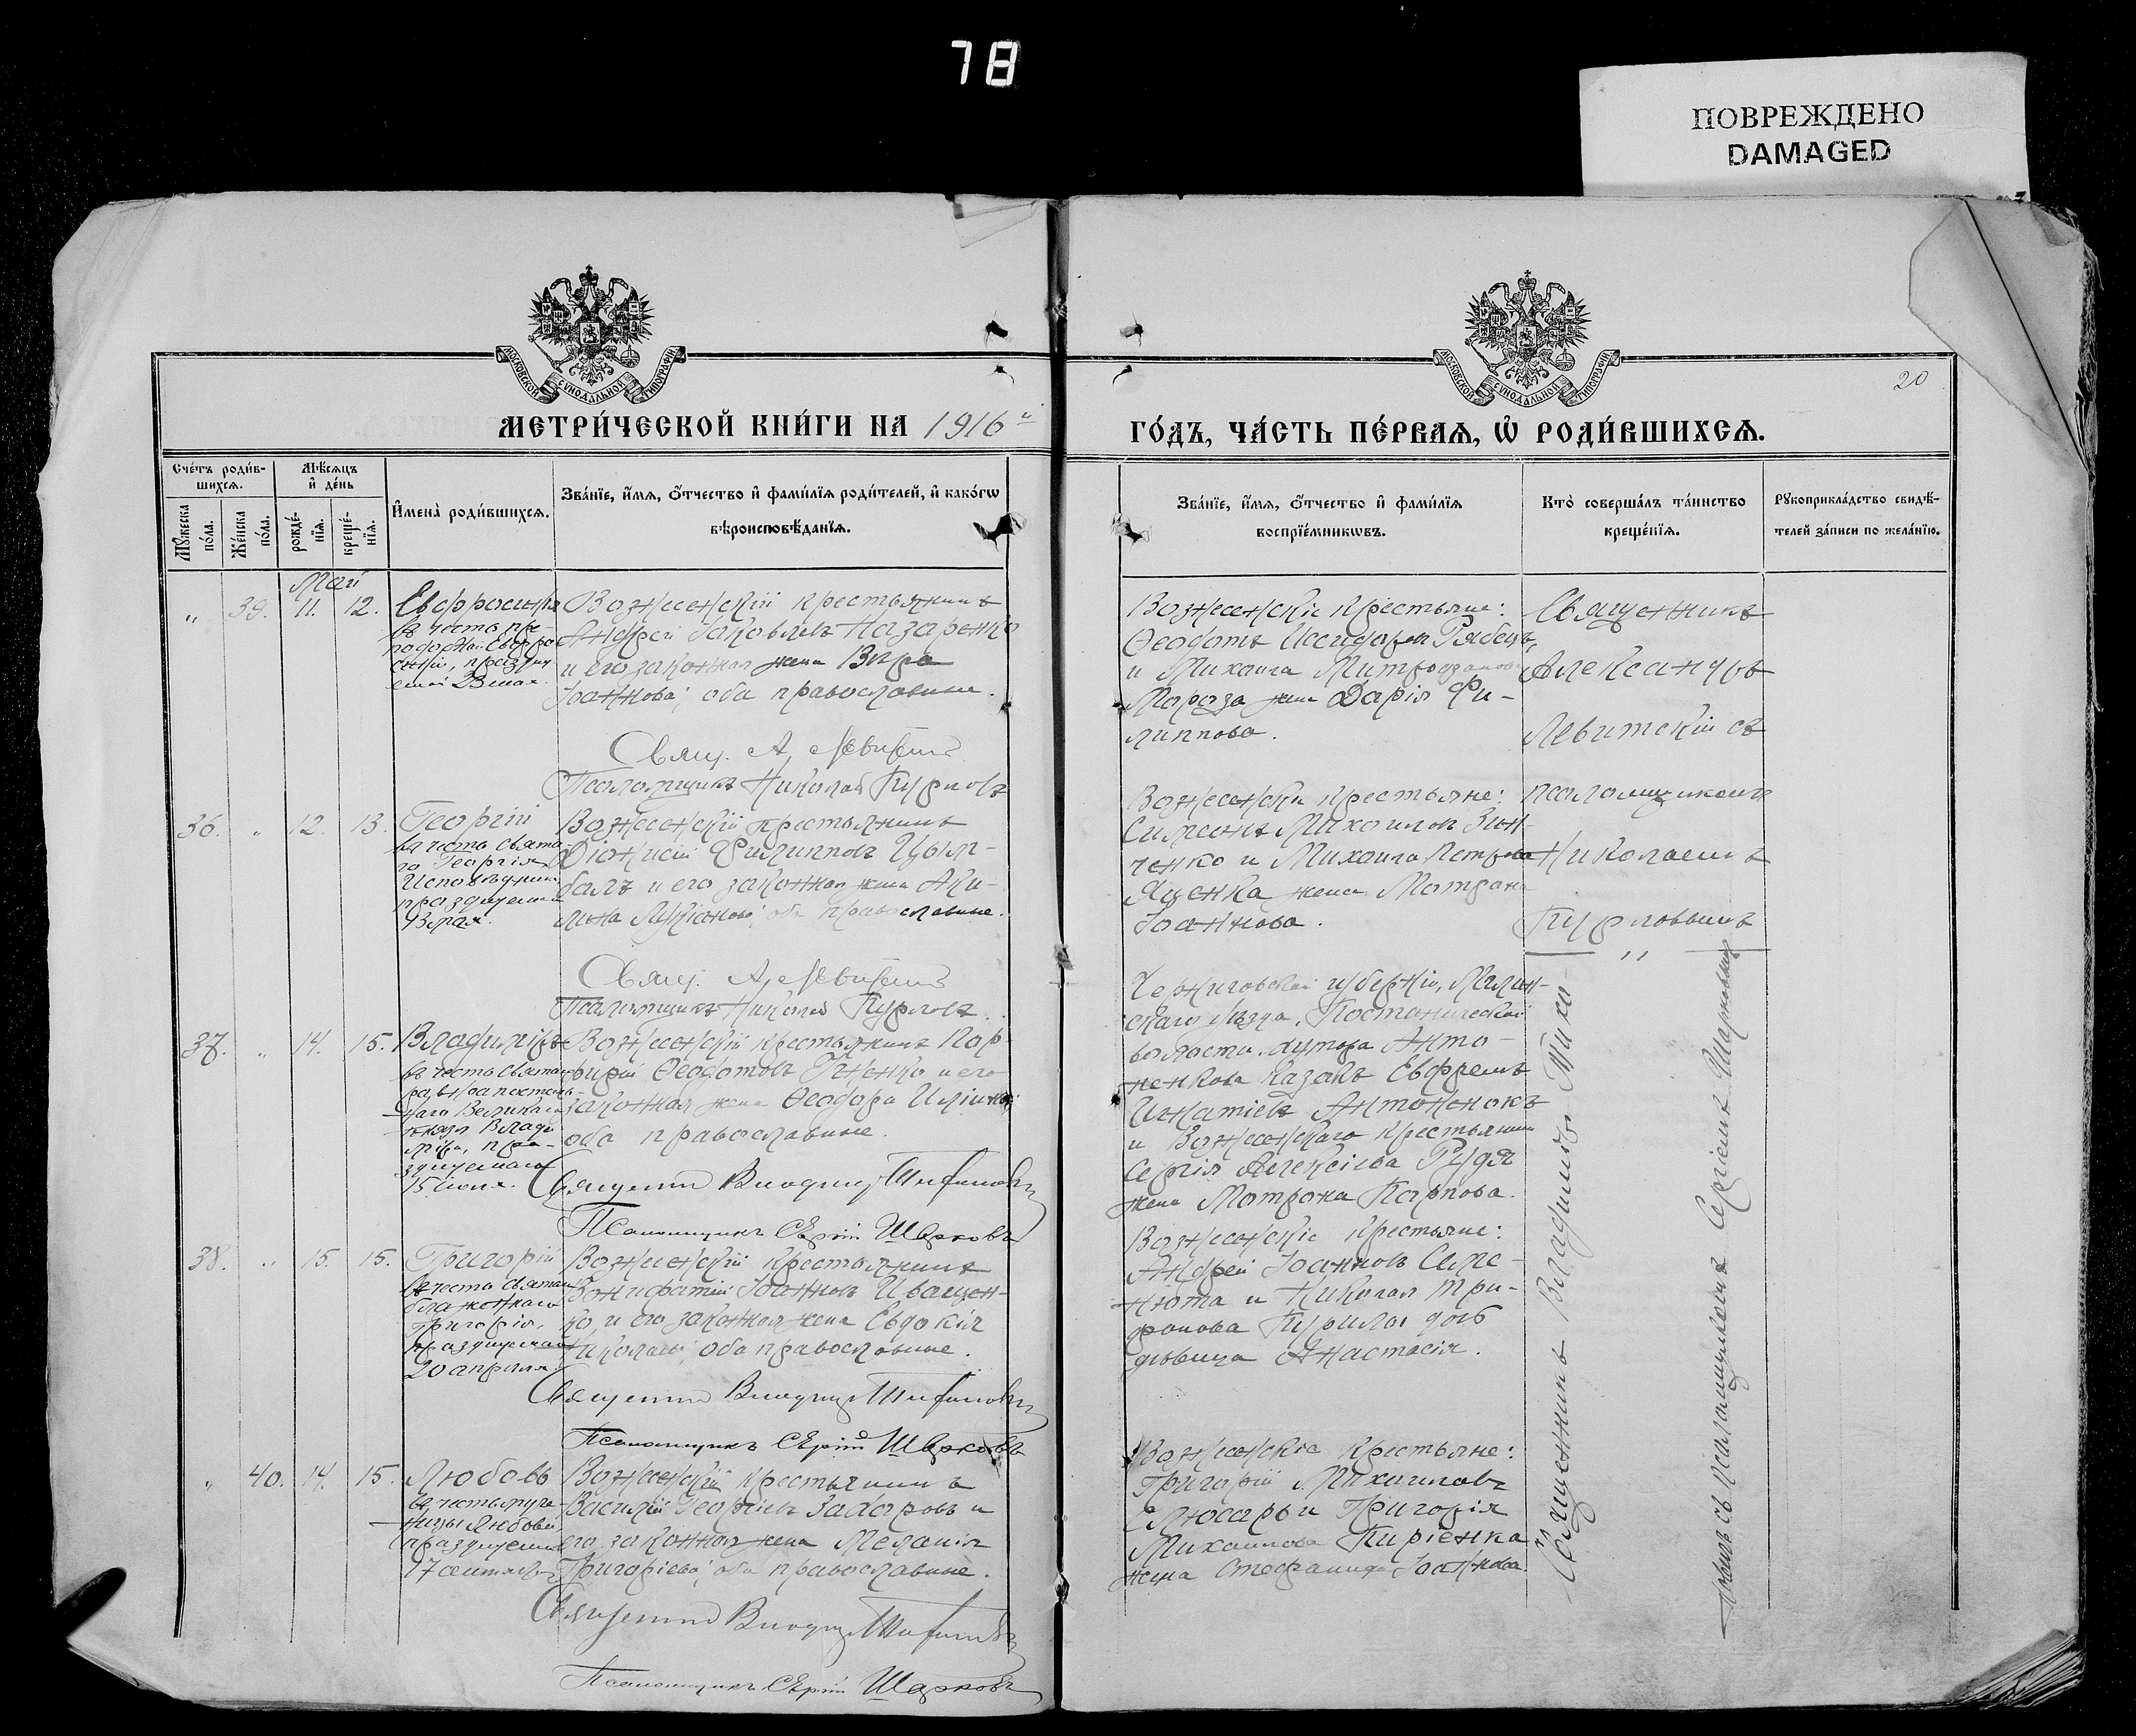 78
ПОВРЕЖДЕНО
DAMAGED
МОСКОВСКОЙ СУНОДАЛЬНОЙ ТИПОГРАФІИ
МОСКОВСКОЙ СУНОДАЛЬНОЙ ТИПОГРАФІИ
20
МЕТРИ́ЧЕСКОЙ КНИ́ГИ НА 1916й
ГО́ДЪ, ЧА́СТЬ ПЕ́РВАѦ, Ѡ҆ РОДИ́ВШИХСѦ.
Сче́тъ роди́в-
шихсѧ.
Мѣ́сѧцъ
и҆ де́нь
Мꙋ́жеска по́ла.
Же́нска по́ла.
рожде́-
нїѧ.
креще́-
нїѧ.
И҆мена̀ роди́вшихсѧ.
Зва́нїе, и҆́мѧ, ѻ҆́тчество и҆ фами́лїѧ роди́телей, и҆ како́гѡ
вѣроисповѣ́данїѧ.
Зва́нїе, и҆́мѧ, ѻ҆́тчество и҆ фами́лїѧ
воспрїе́мникѡвъ.
Кто̀ соверша́лъ та́инство
креще́нїѧ.
Рꙋкоприкла́дство свидѣ́-
телей за́писи по жела́нїю.
Май
" 39. 11. 12.
Евфросинія
въ честь пре-
23 мая.
Вознесенскій крестьянинъ
Андрей Іаковлевъ Назаренко
и его законная жена Вѣра
Іоаннова; оба православные.
Свящ. А. Левитскій
Псаломщикъ Николай Курловъ
Вознесенскіе крестьяне:
Ѳеодотъ Исидоровъ Рябецъ,
и Михаила Митрофанова
Мороза жена Дарія Фи-
липпова.
Священникъ
Александръ
Левитскій съ
псаломщикомъ
Николаемъ
Курловымъ
"
36. " 12. 13.
Георгій
въ честь свята-
го Георгія
Исповѣдника
13 мая.
Вознесенскій крестьянинъ
Діонисій Филипповъ Цым-
балъ и его законная жена Аки-
лина Лукіанова; оба православные.
Свящ. А. Левитскій
Псаломщикъ Николай Курловъ.
Вознесенскіе крестьяне:
Симеонъ Михаиловъ Зин-
ченко и Михаила Петрова
Яценка жена Матрона
Іоаннова.
37. " 14. 15.
Владиміръ
въ честь свята-
го равноапостоль-
наго Великаго
князя Влади-
міра, пра-
зднуемаго
15 іюля.
Вознесенскій крестьянинъ Пор-
фирій Ѳеодотовъ Гненко и его
законная жена Ѳеодора Иліина;
оба православные.
Псаломщикъ Сергій Шарковъ
Черниговской губерніи,
скаго уѣзда,
волости, хутора Анто-
ненкова казакъ Евфремъ
Игнатіевъ Антоненокъ
и Вознесенскаго крестьянина
Сергія Алексіева Рудя
жена Матрона Карпова.
38. " 15. 15.
Григорій
въ честь святаго
блаженнаго
Григорія,
празднуемаго
20 апрѣля.
Вознесенскій крестьянинъ
Вонифатій Іоанновъ Иващен-
ко и его законная жена Евдокія
Николаева; оба православные.
Псаломщикъ Сергій Шарковъ
Вознесенскіе крестьяне:
Андрей Іоанновъ Семе-
нюта и Николая Три-
фонова Курила дочь
дѣвица Анастасія.
" 40. 14. 15.
Любовь
въ честь муче-
ницы Любови,
празднуемой
17 сентября
Вознесенскій крестьянинъ
Василій Георгіевъ Захаровъ и
его законная жена Меланія
Григоріева; оба православные.
Псаломщикъ Сергій Шарковъ
Вознесенскіе крестьяне:
Григорій Михаиловъ
Слюсарь и Григорія
Михаилова Киріенка
жена Стефанида Іоаннова.
Священникъ Владиміръ
съ псаломщикомъ Сергіемъ Шарковымъ